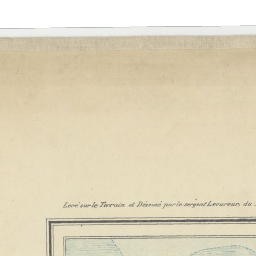 Levé sur le Terrain et Dessiné par le sergent Lecureur du